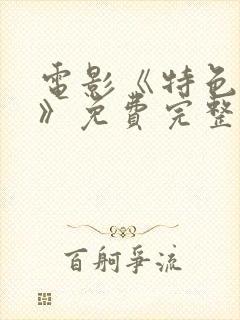 電影《特色
》免費完整
百舸爭流